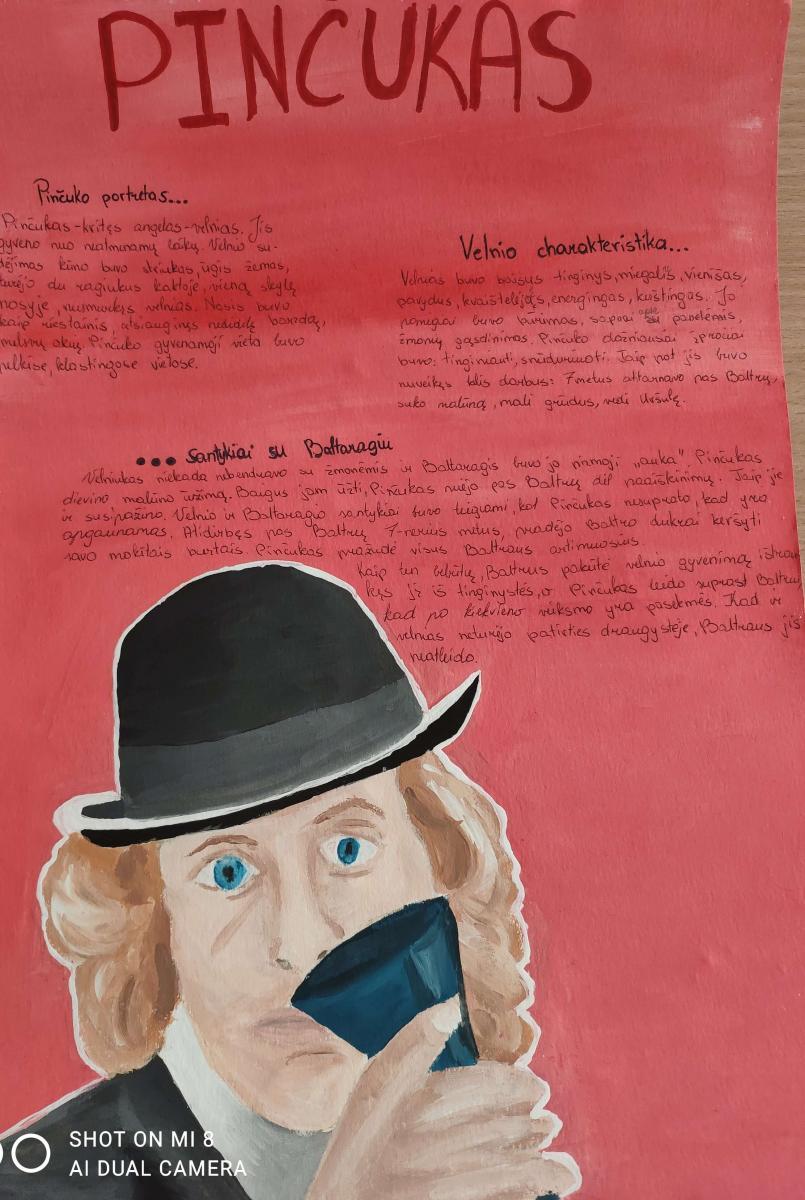 PINČUKAS
Pinčuko portretas...
Pinčukas-kritęs angelas-velnias. Jis
gyveno nuo neatmenamų laikų. Velnio su-
dėjimas kūno buvo striukas, ūgis žemas,
turėjo du ragiukus kaktoje, vieną skylę
nosyje, velnias. Nosis buvo
kaip riestainis, atsiauginęs nedidelę barzdą,
akių. Pinčuko gyvenamoji vieta buvo
klastingose vietose.
Velnio charakteristika...
Velnias buvo baisus tinginys, miegalis, vienišas,
pavydus, kvaištelėjęs, energingas, kerštingas. Jo
pomėgiai buvo būrimas, sapnai apie paneles,
žmonių gąsdinimas. Pinčuko dažniausi įpročiai
buvo: tinginiauti, snūduriuoti. Taip pat jis buvo
nuveikęs kelis darbus: 7 metus attarnavo pas Baltrų,
suko malūną, malė grūdus, vedė Uršulę.
... santykiai su Baltaragiu
Velniukas niekada nebendravo su žmonėmis ir Baltaragis buvo jo pirmoji „auka" Pinčukas
dievino malūno ūžimą. Baigus jam ūžti, Pinčukas nuėjo pas Baltrų dėl paaiškinimų. Taip jie
ir susipažino. Velnio ir Baltaragio santykiai buvo teigiami, kol Pinčukas nesuprato, kad yra
apgaunamas. Atidirbęs pas Baltrų 7-nerius metus, pradėjo Baltro dukrai keršyti
savo mokėtais burtais. Pinčukas pražudė visus Baltraus artimuosius.
Kaip ten bebūtų, Baltrus pakeitė velnio gyvenimą ištrau
kęs jį iš tinginystės, o Pinčukas leido suprast Baltrui
kad po kiekvieno veiksmo yra pasekmės. Kad ir
velnias neturėjo patirties draugystėje, Baltraus jis
neatleido.
SHOT ON MI 8
AI DUAL CAMERA